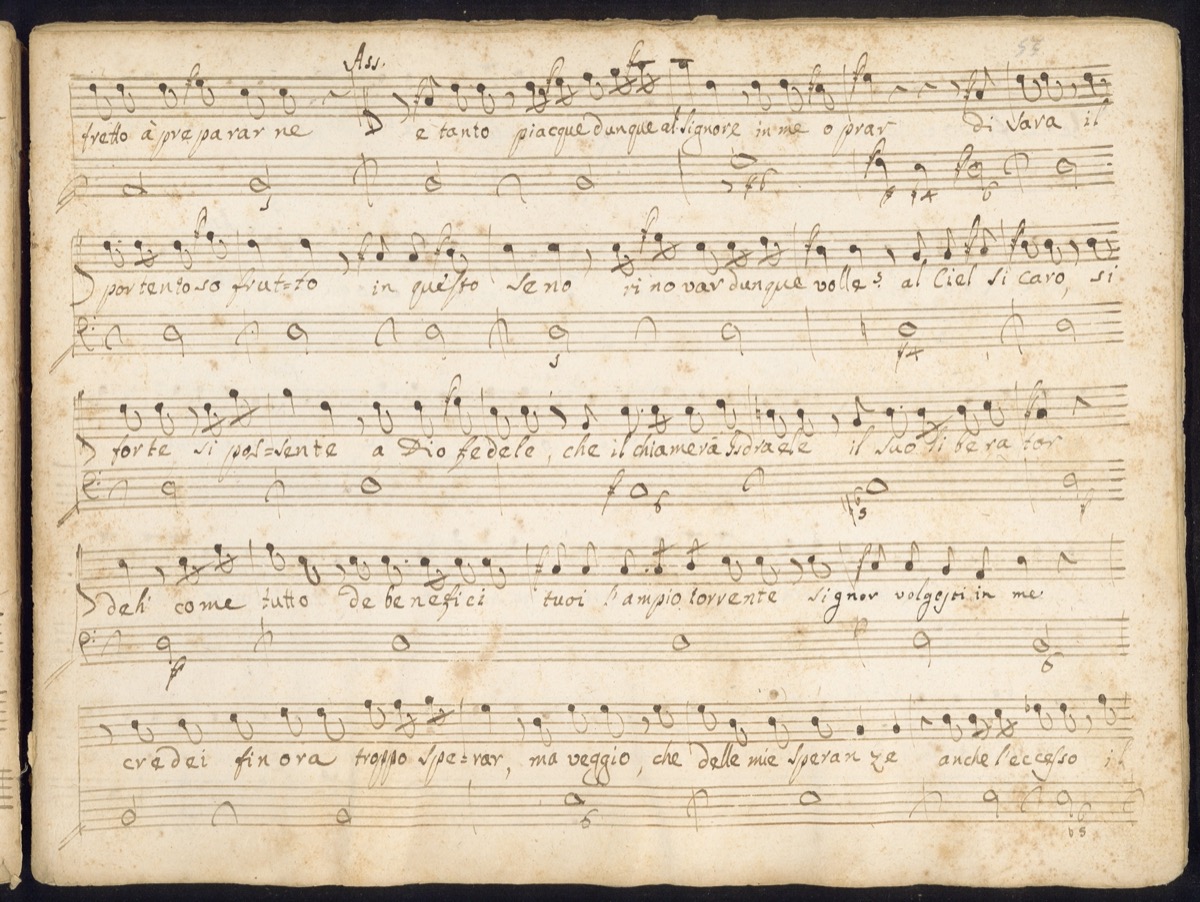 53
Ass.
fretto à pre pa rar ne è tanto piacque dunque al signore in me o prar di sara il
portentoso frut=to in questo seno ri no var dunque volle? al Ciel si caro, si
forte si pos=sente a Dio fedele, che il chiamerà Isdraele il suo li be ra tor
deh come tutto de benefici tuoi l'ampio torrente signor volgesti in me
credei fin ora troppo spe=rar, ma veggio, che delle mie speran ze anche l'eccesso il